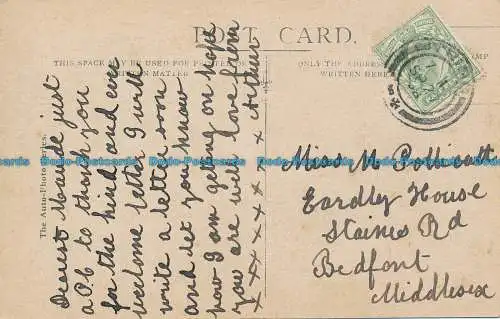 POST CARD.
THIS SPACE MAY BE USED FOR
WRITTEN MATTER
ONLY THE ADDRESS
WRITTEN HERE
STAMP
The Auto-Photo Series.
Dearest Maude just
a P.C to thank you
for the kind and ever
welcome letter I will
write a letter soon
and let you know
how I am getting on hope
you are well love from
x x x x x x x x Arthur
Miss M Pollicutt
Eardley House
Staines Rd
Bedfont
Middlesex
Dodo-Postcards Dodo-Postcards Dodo-Postcards Dodo-Postcards